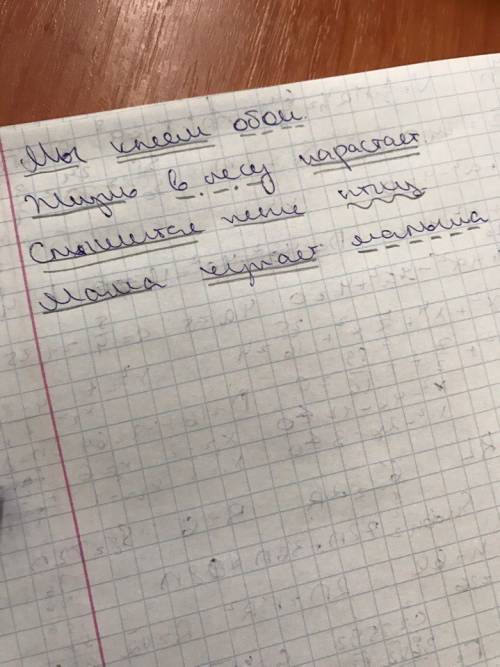 Мы клеем обои.
Жизнь в лесу нарастает
Слышится пение птиц
Мама малыша